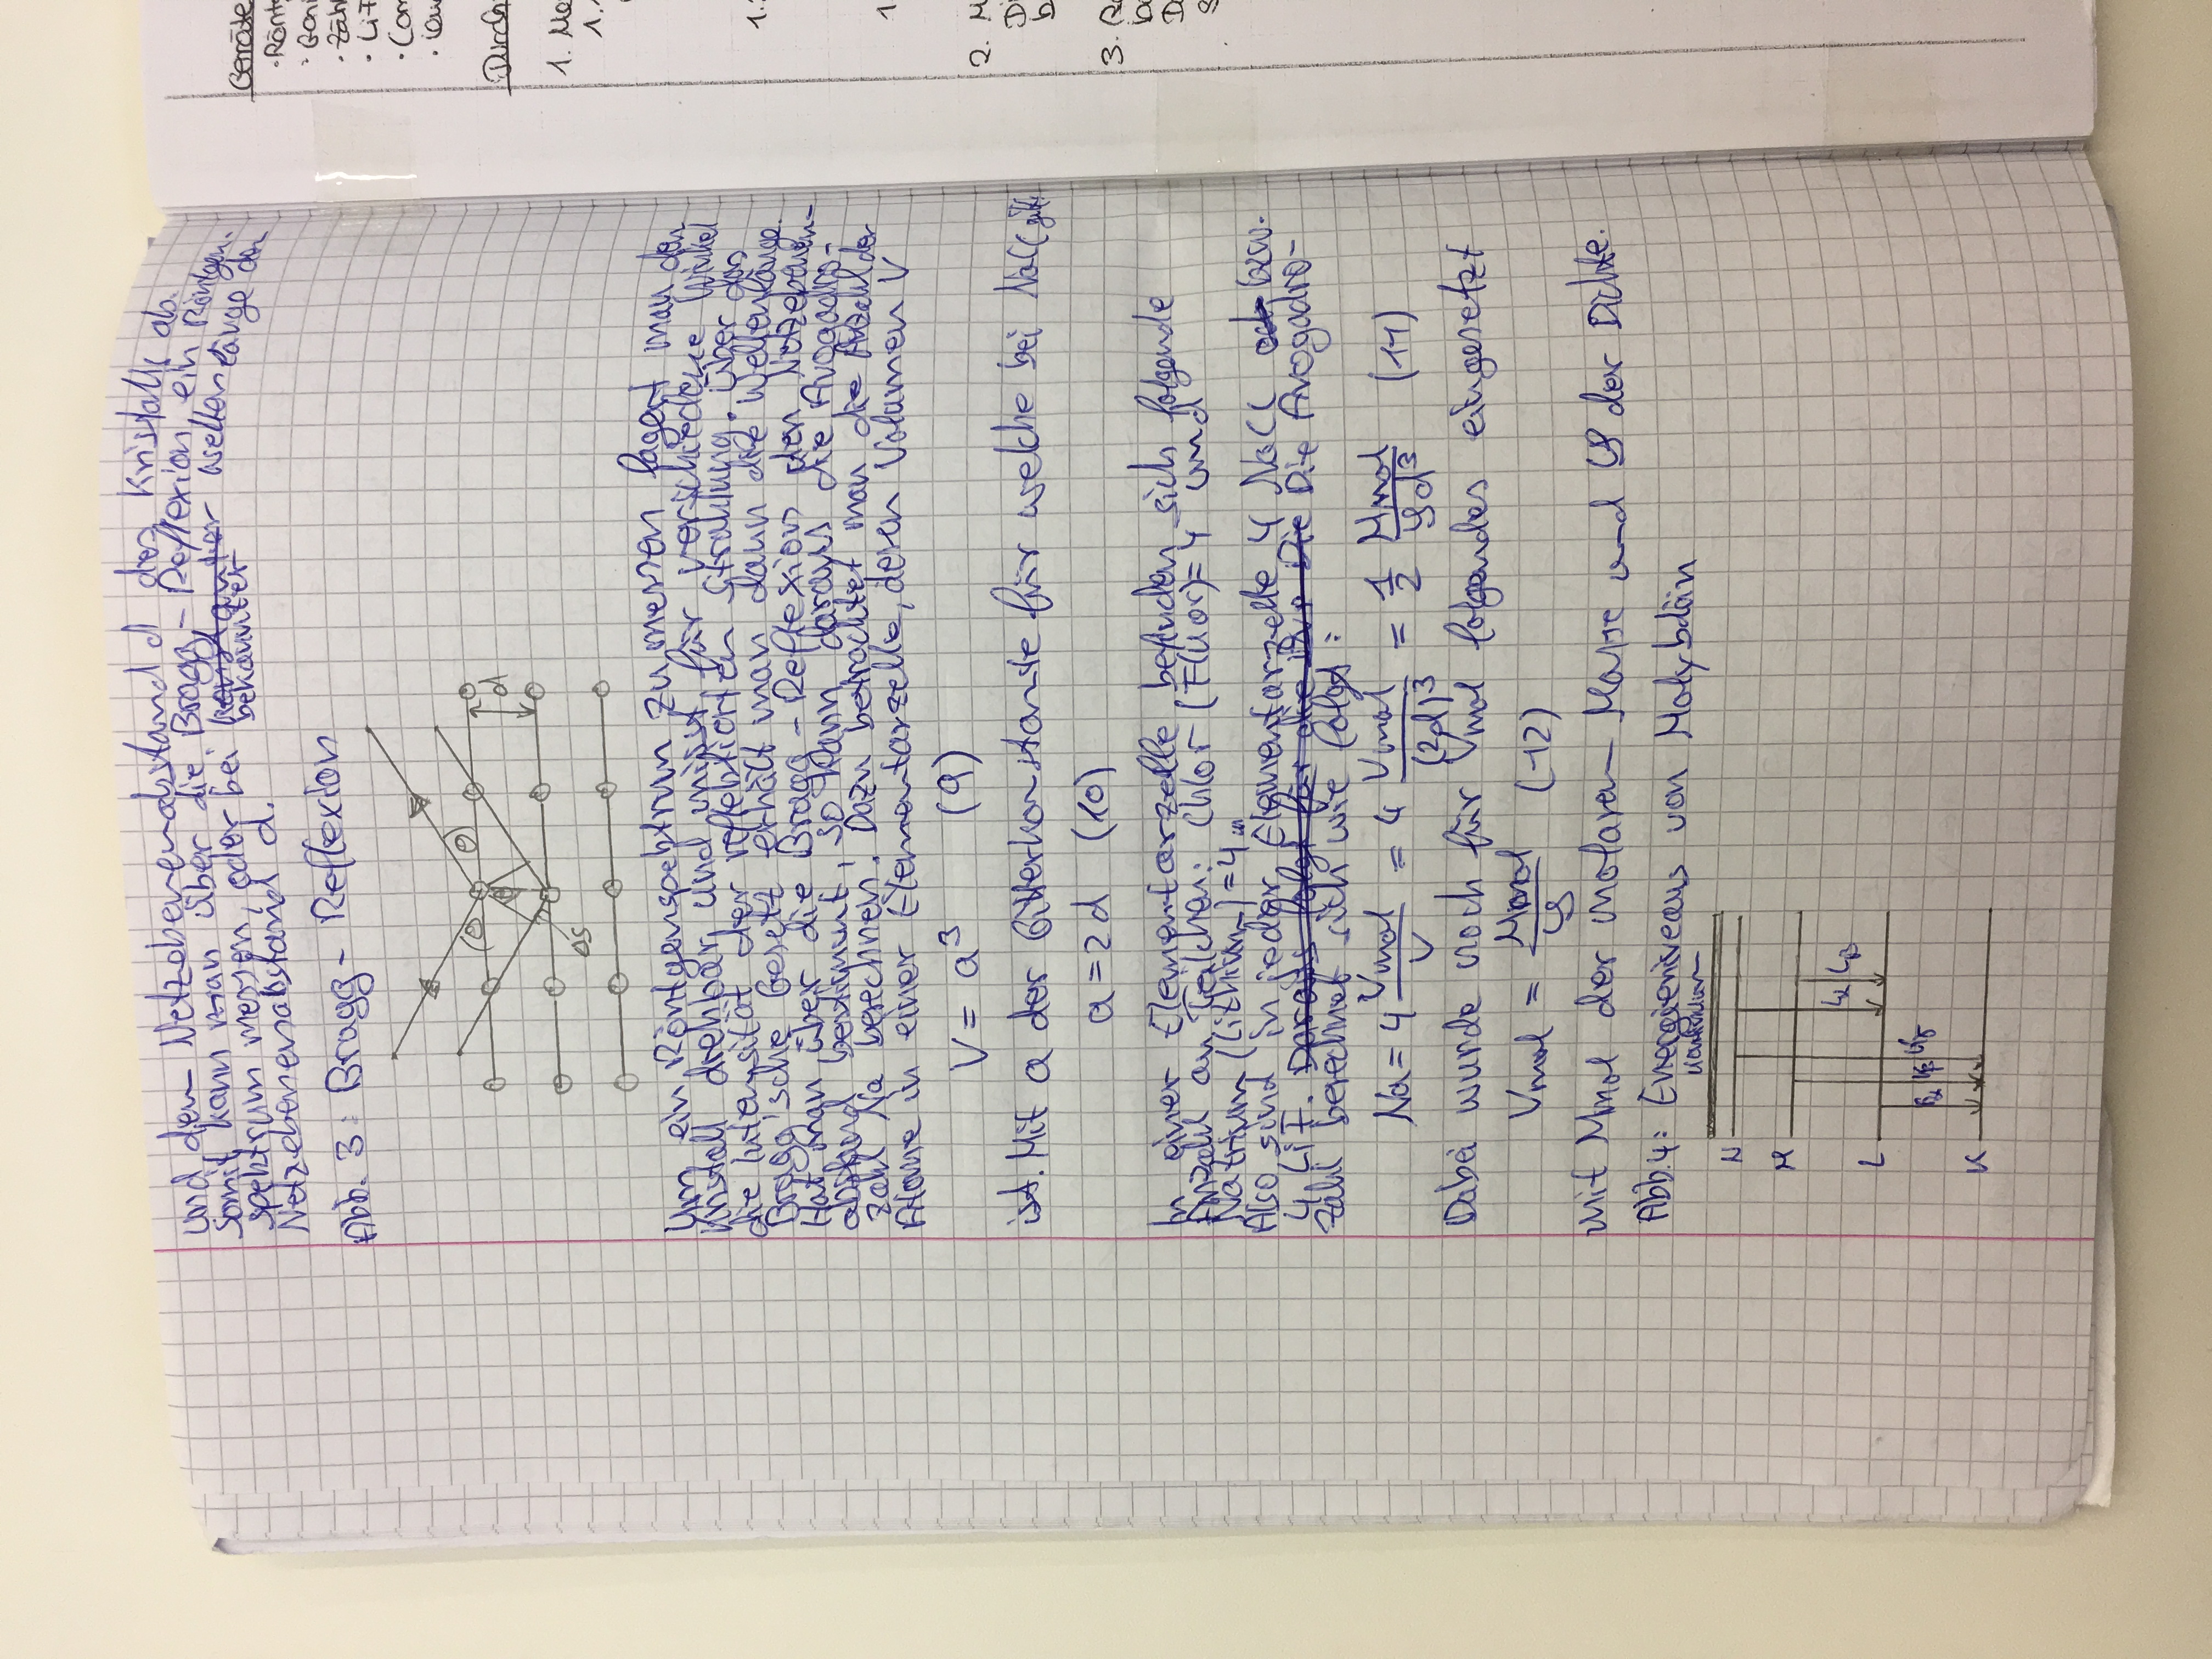 und dem Netzebenenabstand d des Kristalls ab.
Somit kann man über die Bragg-Reflexion ein Röntgen-
spektrum messen, oder bei konstanter Wellenlänge den
bekannter
Netzebenenabstand d.
Abb. 3: Bragg-Reflexion
Θ Θ
d
Δs
Um ein Röntgenspektrum zu messen lagert man den
Kristall drehbar und misst für verschiedene Winkel
die Intensität der reflektierten Strahlung. Über das
Bragg'sche Gesetz erhält man dann die Wellenlänge.
Hat man über die Bragg-Reflexion den Netzebenen-
abstand bestimmt, so kann daraus die Avogadro-
zahl Na berechnen. Dazu betrachtet man die Anzahl der
Atome in einer Elementarzelle, deren Volumen V
V = a³ (9)
ist. Mit a der Gitterkonstante für welche bei NaCl gilt:
a = 2d (10)
In einer Elementarzelle befinden sich folgende
Anzahl an Teilchen: Chlor (Fluor) = 4 und
Natrium (Lithium) = 4
Also sind in jeder Elementarzelle 4 NaCl bzw.
4 LiF. Daraus folgt für die Die Die Avogadro-
zahl berechnet sich wie folgt:
Na = 4 Vmol/V = 4 Vmol/(2d)³ = 1/2 Mmol/ρd³ (11)
Dabei wurde noch für Vmol folgendes eingesetzt
Vmol = Mmol/ρ (12)
mit Mmol der molaren Masse und ρ der Dichte.
Abb. 4: Energieniveaus von Molybdän
Kontinuum
N
M
Lα Lβ
L
Kα Kβ Kγ
K
Geräte
· Rönt
· Goni
· Zäh
· LiF
· Com
Durch
1. Me
1.1
1.
1
2. M
Di
b
3. Re
be
D
S